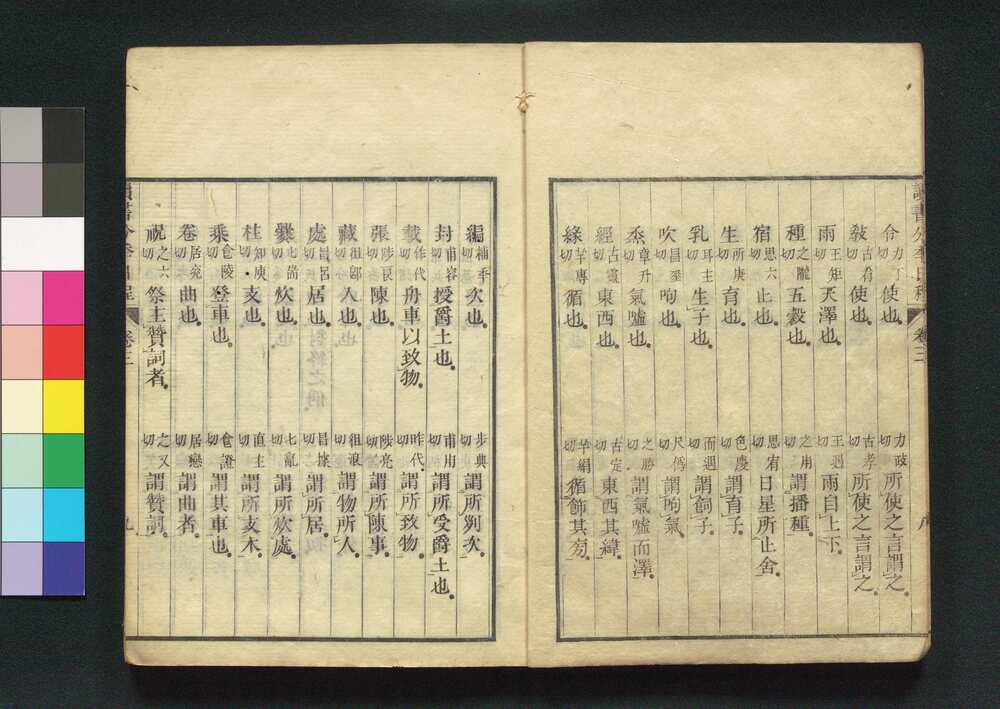 令力丁切使也。力政切所使之言謂之。
敎古肴切使也。古孝切所使之言謂之。
雨王矩切天澤也。王遇切雨自上下。
種之隴切五穀也。之用切謂播種。
宿思六切止也。思宥切日星所止舍。
生所庚切育也。色慶切謂育子。
乳耳主切生子也。而遇切謂飼子。
吹昌垂切呴也。尺僞切謂呴氣。
烝章升切氣噓也。之勝切謂氣噓而澤。
經古靈切東西也。古定切東西其緯。
緣羊專切循也。羊絹切循飾其旁。
編補季切次也。步典切謂所列次。
封甫容切授爵土也。甫用切謂所受爵土也。
載作代切舟車以致物。昨代切謂所致物。
張陟良切陳也。陟亮切謂所陳事。
藏徂郎切入也。徂浪切謂物所入。
處昌呂切居也。昌據切謂所居。
爨七耑切炊也。七亂切謂所炊處。
柱知庾切支也。直主切謂所支木。
乘食陵切登車也。食證切謂其車也。
卷居兗切曲也。居戀切謂曲者。
祝之六切祭主贊詞者。之又切謂贊詞。
卷三
九